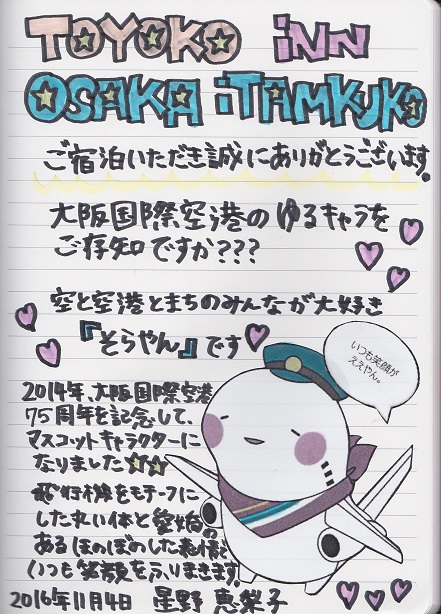 TOYOKO iNN
OSAKA iTAMKUKO
ご宿泊いただき誠にありがとうございます。
大阪国際空港のゆるキャラを
ご存知ですか???
空と空港とまちのみんなが大好き
『そらやん』です
いつも笑顔が
ええやん。
2014年、大阪国際空港
75周年を記念して、
マスコットキャラクターに
なりました☆☆
飛行機をモチーフに
した丸い体と愛嬌の
あるほのぼのした表情と
いつも笑顔をふりまきます。
2016年11月4日 星野 恵梨子